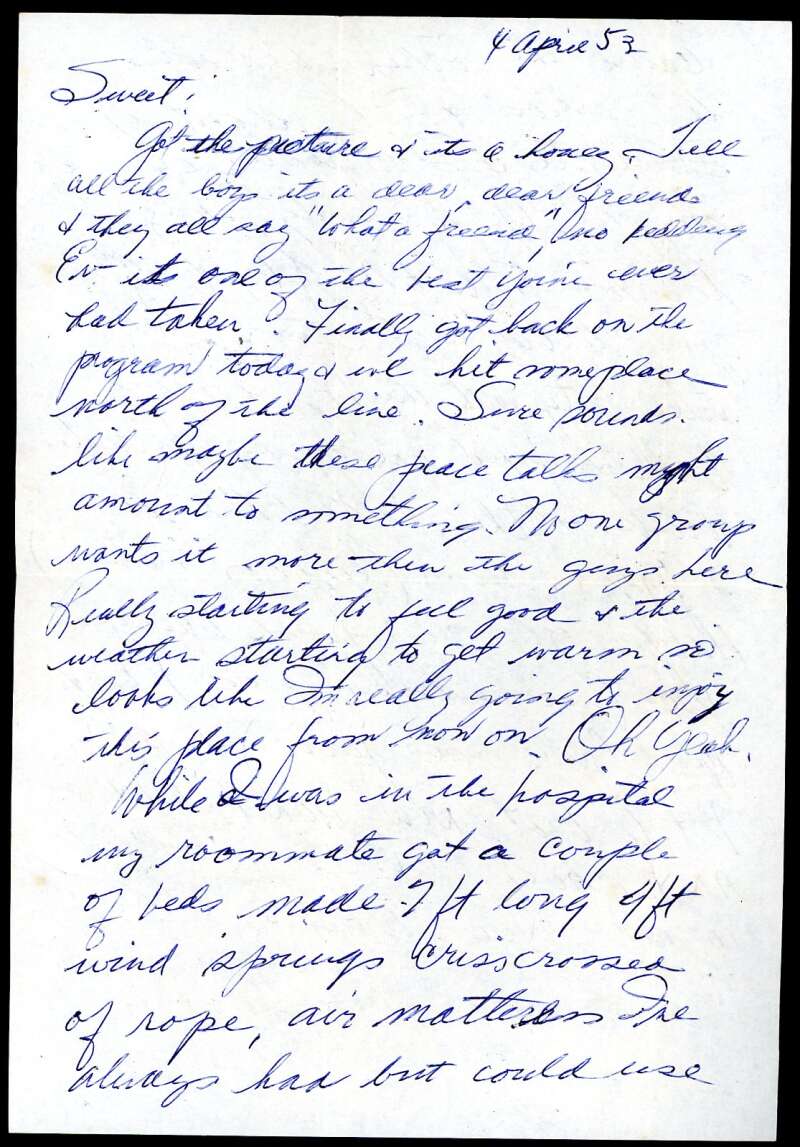 4 April 53
Sweet:
Got the picture & its a honey. Tell
all the boys its a dear, dear friend
& they all say "What a friend", no kidding
Ev its one of the best you've ever
had taken. Finally got back on the
program today & we'll hit someplace
north of the line. Sure sounds
like maybe these peace talks might
amount to something. No one group
wants it more then the guys here
Really starting to feel good & the
weather starting to get warm so
looks like I'm really going to enjoy
this place from now on. Oh Yeah.
While I was in the hospital
my roommate got a couple
of beds made 7 ft long 4 ft
wind springs crisscrossed
of rope, air mattress I've
always had but could use